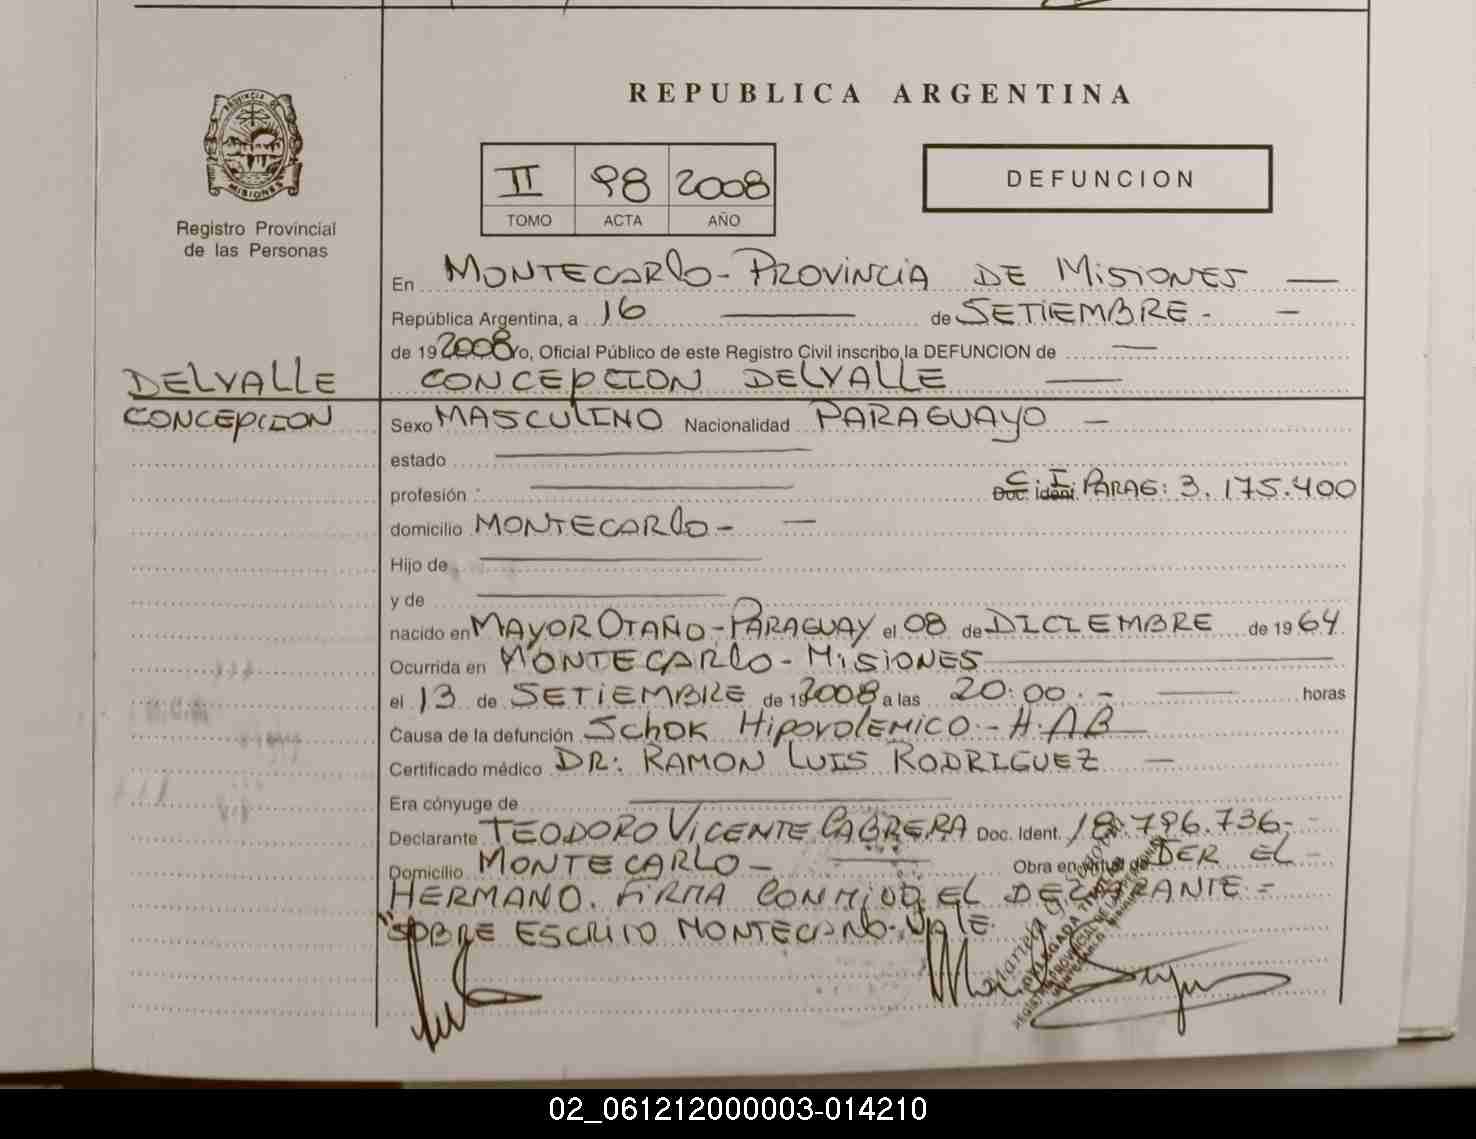 REPUBLICA ARGENTINA
PROVINCIA DE
MISIONES
Registro Provincial
de las Personas
II 98 2008
TOMO ACTA AÑO
DEFUNCION
En MONTECARLO - PROVINCIA DE MISIONES —
República Argentina, a 16 — de SETIEMBRE - —
de 19 2008 Yo, Oficial Público de este Registro Civil inscribo la DEFUNCION de —
DELVALLE CONCEPCION DELVALLE —
CONCEPCION
Sexo MASCULINO Nacionalidad PARAGUAYO —
estado —
profesión — Doc. Ident. C. I. PARAG: 3.175.400
domicilio MONTECARLO - —
Hijo de —
y de —
nacido en MAYOR OTAÑO - PARAGUAY el 08 de DICIEMBRE de 19 64
Ocurrida en MONTECARLO - MISIONES —
el 13 de SETIEMBRE de 19 2008 a las 20:00. - — horas
Causa de la defunción SCHOK HIPOVOLEMICO - H. AB —
Certificado médico DR: RAMON LUIS RODRIGUEZ —
Era cónyuge de —
Declarante TEODORO VICENTE CABRERA Doc. Ident. 18.796.736-
Domicilio MONTECARLO - — Obra en virtud de SER EL -
HERMANO. FIRMA CONMIGO EL DECLARANTE. =
"SOBRE ESCRITO MONTECARLO. VALE.
02_061212000003-014210